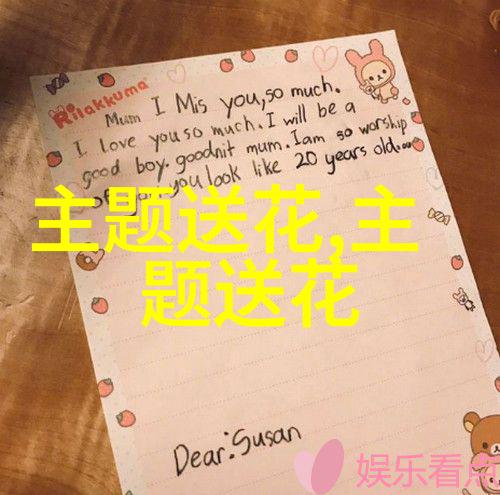 Rilakkuma
Mum I Mis you, so much.
I love you so much. I will be a
good boy. goodnit mum. I am so worship
you look like 20 years old.
主题送花,主
题送花
Dear: Susan
娱乐看点